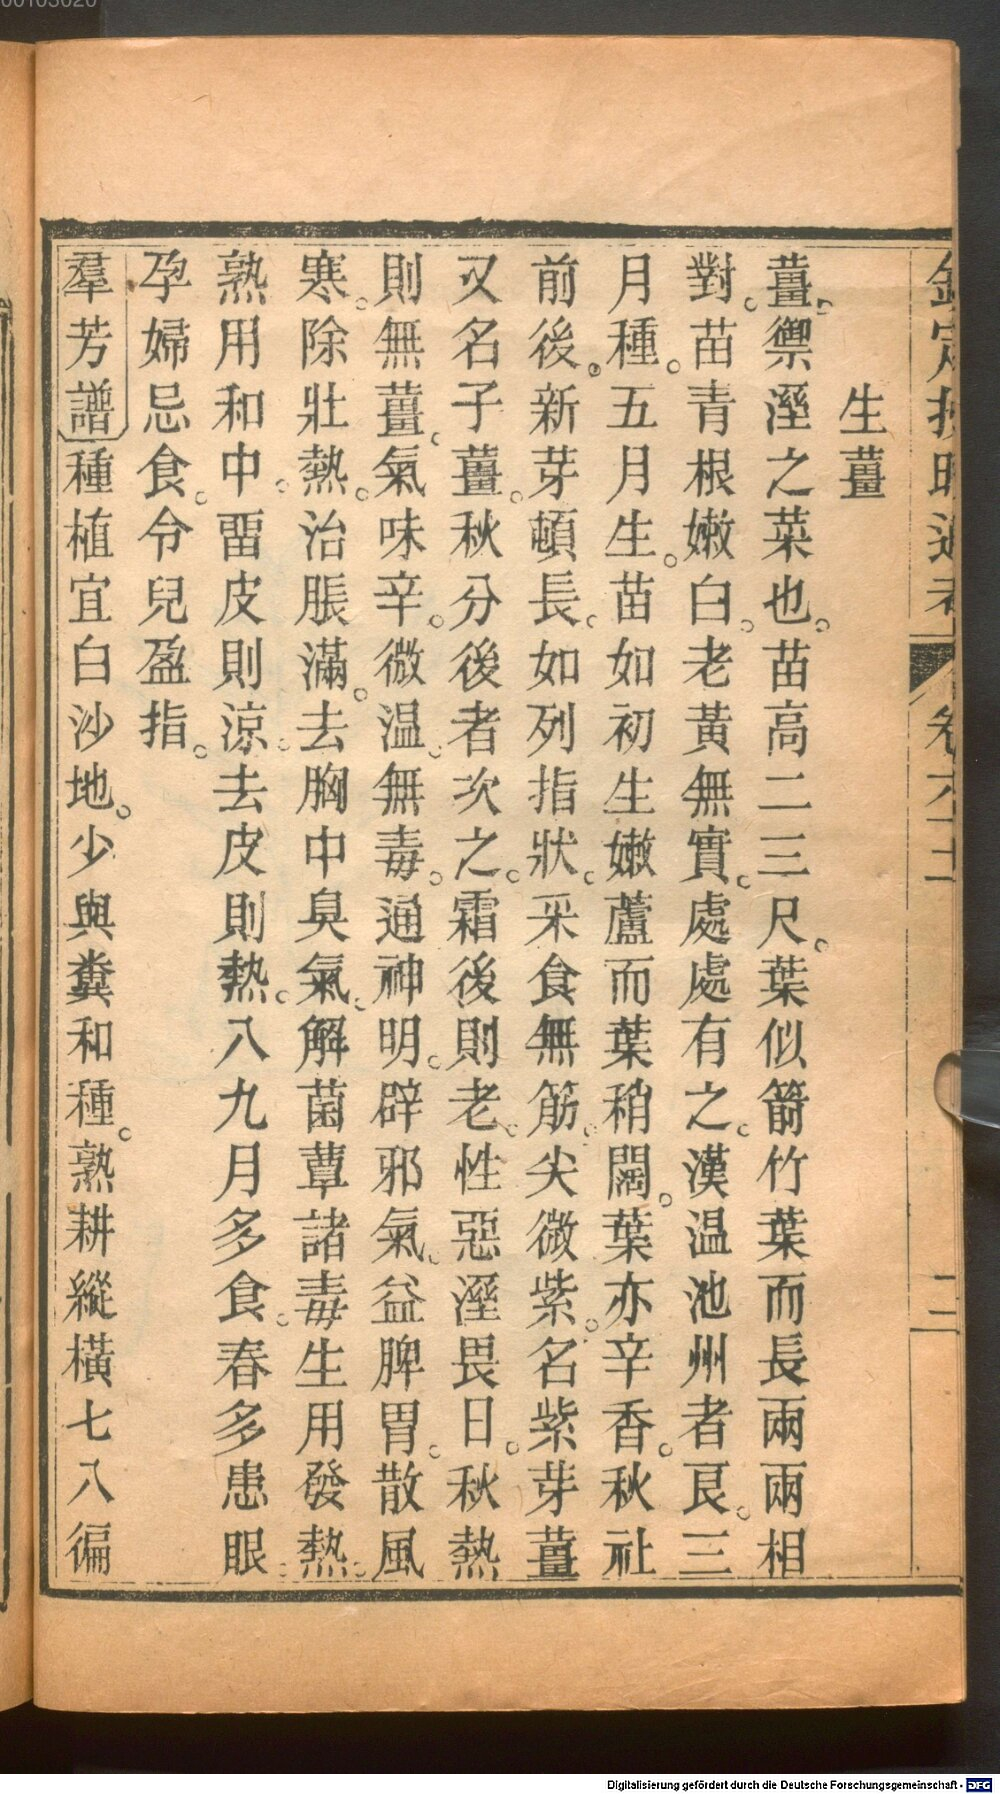 欽定授時通考 卷六十一 二
生薑
薑禦溼之菜也。苗高二三尺。葉似箭竹葉而長兩兩相
對。苗青根嫩白。老黃無實。處處有之。漢温池州者良。三
月種。五月生。苗如初生嫩蘆而葉稍闊。葉亦辛香。秋社
前後。新芽頓長。如列指狀。采食無筋。尖微紫。名紫芽薑
又名子薑。秋分後者次之。霜後則老。性惡溼畏日。秋熱
則無薑。氣味辛。微温。無毒。通神明。辟邪氣。益脾胃。散風
寒。除壯熱。治脹滿。去胸中臭氣。解菌蕈諸毒生用發熱。
熟用和中。畱皮則涼。去皮則熱。八九月多食。春多患眼。
孕婦忌食。令兒盈指。
羣芳譜種植宜白沙地。少與糞和種。熟耕縱橫七八徧
Digitalisierung gefördert durch die Deutsche Forschungsgemeinschaft - DFG